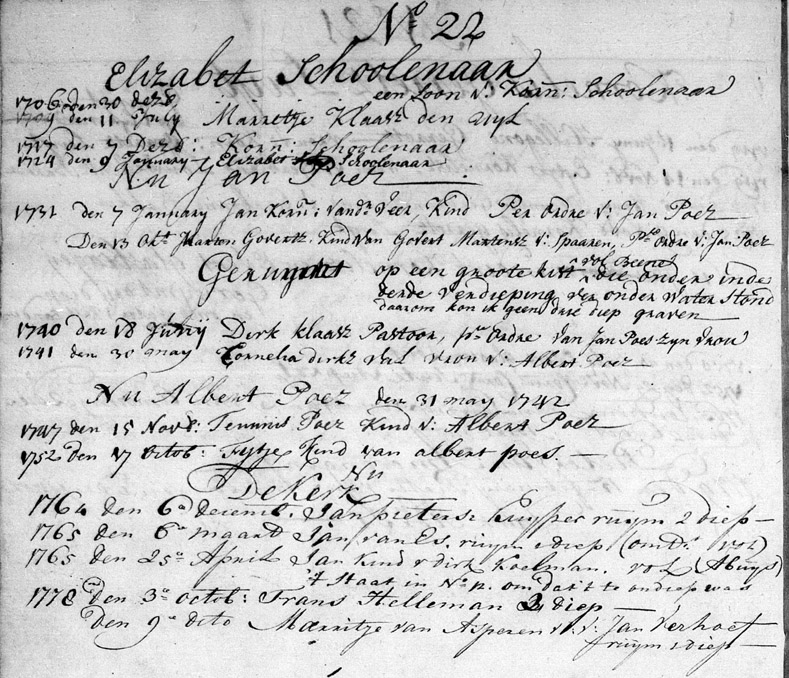 No 22
Elizabet Schoolenaar
1706 den 30 dezb een soon v: Korn: Schoolenaar
1709 den 11 July Marretje Klaasz den uyl
1717 den 7 Dezb: Korn: Schoolenaar
1724 den 9 January Elizabet Schoolenaar
Nu Jan Poez
1731 den 7 January Jan Korn: vandr Veer, Kind Per ordre v: Jan Poez
Den 13 Okt Marten Govertz. Kind van Govert Martensz v: Spaaren, Pr ordre v: Jan Poez
vol Beene
Geruymt op een groote kist die onder in de
derde verdieping onder water stond
daarom kon ik geen drie diep graven
1740 den 18 Junij Dirk Klaasz Pastoor, pr ordre van Jan Poes zyn vrou
1741 den 30 may Cornelia dirkz vrou v: Albert Poez
Nu Albert Poez den 31 may 1742
1747 den 15 Novb: Teunnis Poez Kind v: Albert Poez
1752 den 17 octob: Fijtje Kind van albert poes. —
Nu
De Kerk
1764 den 6a decemb. Jan pieterse Kuyper ruym 2 diep —
1765 den 6en maart Jan van Es, ruym diep (omdt vol)
1765 den 25e April Jan Kind v dirk Koelman. vol (Abuys)
't Staat in No 12. om dat 't te ondiep was
1778 Den 3e octob: Frans Helleman 2 diep —
den 9e dito Marritje van Asperen v. v: Jan Verhoef
ruym diep —